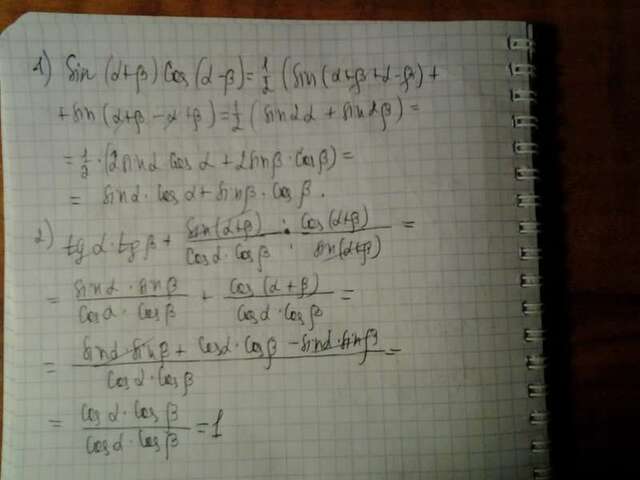 1) Sin (α+β) Cos (α-β) = 1/2 (Sin (α+β+α-β) +
+ sin (α+β - α+β) = 1/2 (sin2α + sin2β) =
= 1/2 · (2sinα cosα + 2sinβ · cosβ) =
= sinα · cosα + sinβ · cosβ.
2) tgα · tgβ + sin(α+β)/(cosα · cosβ) · cos(α+β)/sin(α+β) =
= (sinα · sinβ)/(cosα · cosβ) + cos(α+β)/(cosα · cosβ) =
= (sinα · sinβ + cosα · cosβ - sinα · sinβ)/(cosα · cosβ) =
= (cosα · cosβ)/(cosα · cosβ) = 1